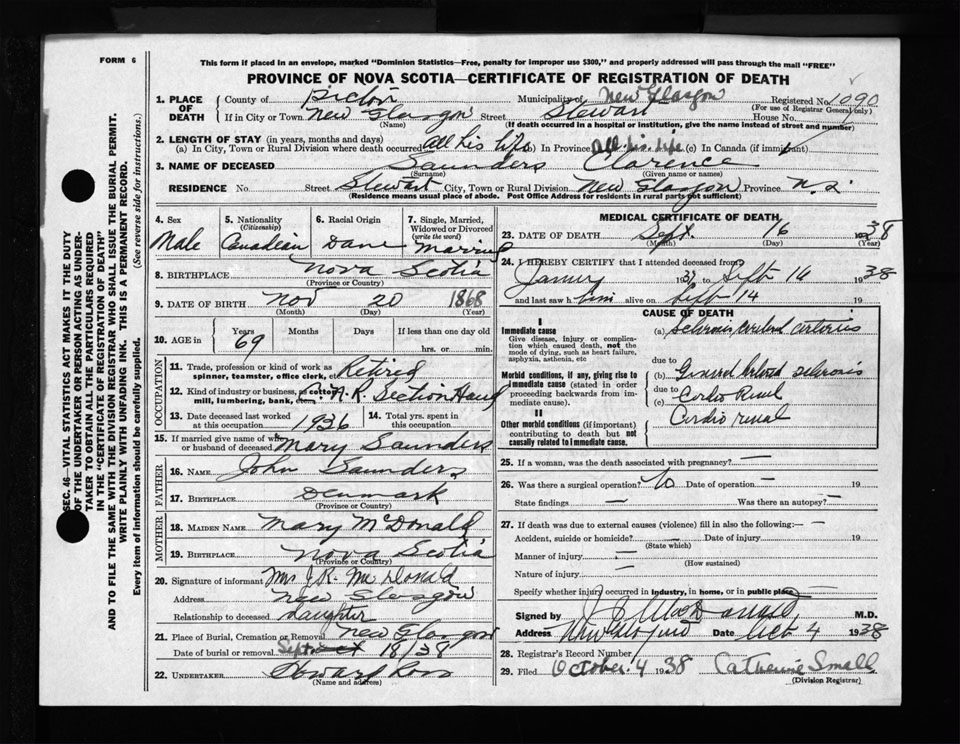 FORM 6
This form if placed in an envelope, marked "Dominion Statistics—Free, penalty for improper use $300," and properly addressed will pass through the mail "FREE"
PROVINCE OF NOVA SCOTIA—CERTIFICATE OF REGISTRATION OF DEATH
1. PLACE OF DEATH
County of Pictou Municipality of New Glasgow Registered No. 1090
(For use of Registrar General only)
If in City or Town New Glasgow Street Stewart House No.
(Name) (If death occurred in a hospital or institution, give the name instead of street and number)
2. LENGTH OF STAY (in years, months and days)
(a) In City, Town or Rural Division where death occurred all his life (b) In Province all his life (c) In Canada (if immigrant)
3. NAME OF DECEASED Saunders Clarence
(Surname) (Given name or names)
RESIDENCE No. Street Stewart City, Town or Rural Division New Glasgow Province N.S.
(Residence means usual place of abode. Post Office Address for residents in rural parts not sufficient)
4. Sex Male
5. Nationality (Citizenship) Canadian
6. Racial Origin Dane
7. Single, Married, Widowed or Divorced (write the word) Married
8. BIRTHPLACE Nova Scotia
(Province or Country)
9. DATE OF BIRTH Nov 20 1868
(Month) (Day) (Year)
10. AGE in Years Months Days If less than one day old
69 hrs. or min.
OCCUPATION
11. Trade, profession or kind of work as spinner, teamster, office clerk, etc. Retired
12. Kind of industry or business, as cotton mill, lumbering, bank, etc. R. Section Hand
13. Date deceased last worked at this occupation 1936
14. Total yrs. spent in this occupation
15. If married give name of wife or husband of deceased Mary Saunders
FATHER
16. NAME John Saunders
17. BIRTHPLACE Denmark
(Province or Country)
MOTHER
18. MAIDEN NAME Mary McDonald
19. BIRTHPLACE Nova Scotia
(Province or Country)
20. Signature of informant Mrs J.R. McDonald
Address New Glasgow
Relationship to deceased daughter
21. Place of Burial, Cremation or Removal New Glasgow
Date of burial or removal Sept 18/38
22. UNDERTAKER Howard Ross
(Name and address)
MEDICAL CERTIFICATE OF DEATH
23. DATE OF DEATH Sept. 16 1938
(Month) (Day) (Year)
24. I HEREBY CERTIFY that I attended deceased from
1937 to Sept 14 1938
and last saw him alive on Sept 14 19
CAUSE OF DEATH
I
Immediate cause
Give disease, injury or complication which caused death, not the mode of dying, such as heart failure, asphyxia, asthenia, etc
(a) sclerosis
due to
Morbid conditions, if any, giving rise to immediate cause (stated in order proceeding backwards from immediate cause).
(b) General sclerosis
due to
(c)
II
Other morbid conditions (if important) contributing to death but not causally related to immediate cause.
Cardio renal
25. If a woman, was the death associated with pregnancy? —
26. Was there a surgical operation? No Date of operation — 19
State findings — Was there an autopsy? —
27. If death was due to external causes (violence) fill in also the following:— —
Accident, suicide or homicide? — Date of injury — 19
(State which)
Manner of injury —
(How sustained)
Nature of injury —
Specify whether injury occurred in industry, in home, or in public place —
Signed by MacDonald M.D.
Address New Glasgow Date Oct 4 1938
28. Registrar's Record Number
29. Filed October 4 1938 Catherine Small
(Division Registrar)
SEC. 46—VITAL STATISTICS ACT MAKES IT THE DUTY
OF THE UNDERTAKER OR PERSON ACTING AS UNDER-
TAKER TO OBTAIN ALL THE PARTICULARS REQUIRED
IN THE "CERTIFICATE OF REGISTRATION OF DEATH"
AND TO FILE THE SAME WITH THE DIVISION REGISTRAR WHO SHALL ISSUE THE BURIAL PERMIT.
WRITE PLAINLY WITH UNFADING INK. THIS IS A PERMANENT RECORD.
Every item of information should be carefully supplied. (See reverse side for instructions.)